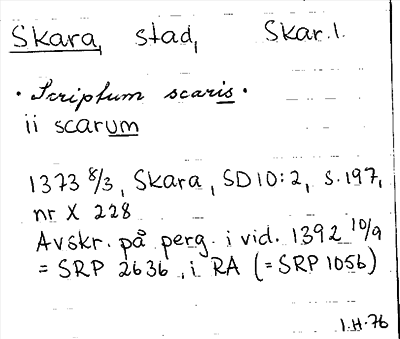 Skara, stad, Skar. l.
· Scriptum scaris ·
ii scarum
1373 8/3, Skara, SD 10:2, s. 197,
nr X 228
Avskr. på perg. i vid. 1392 10/9
= SRP 2636, i RA (= SRP 1056)
I.H-76